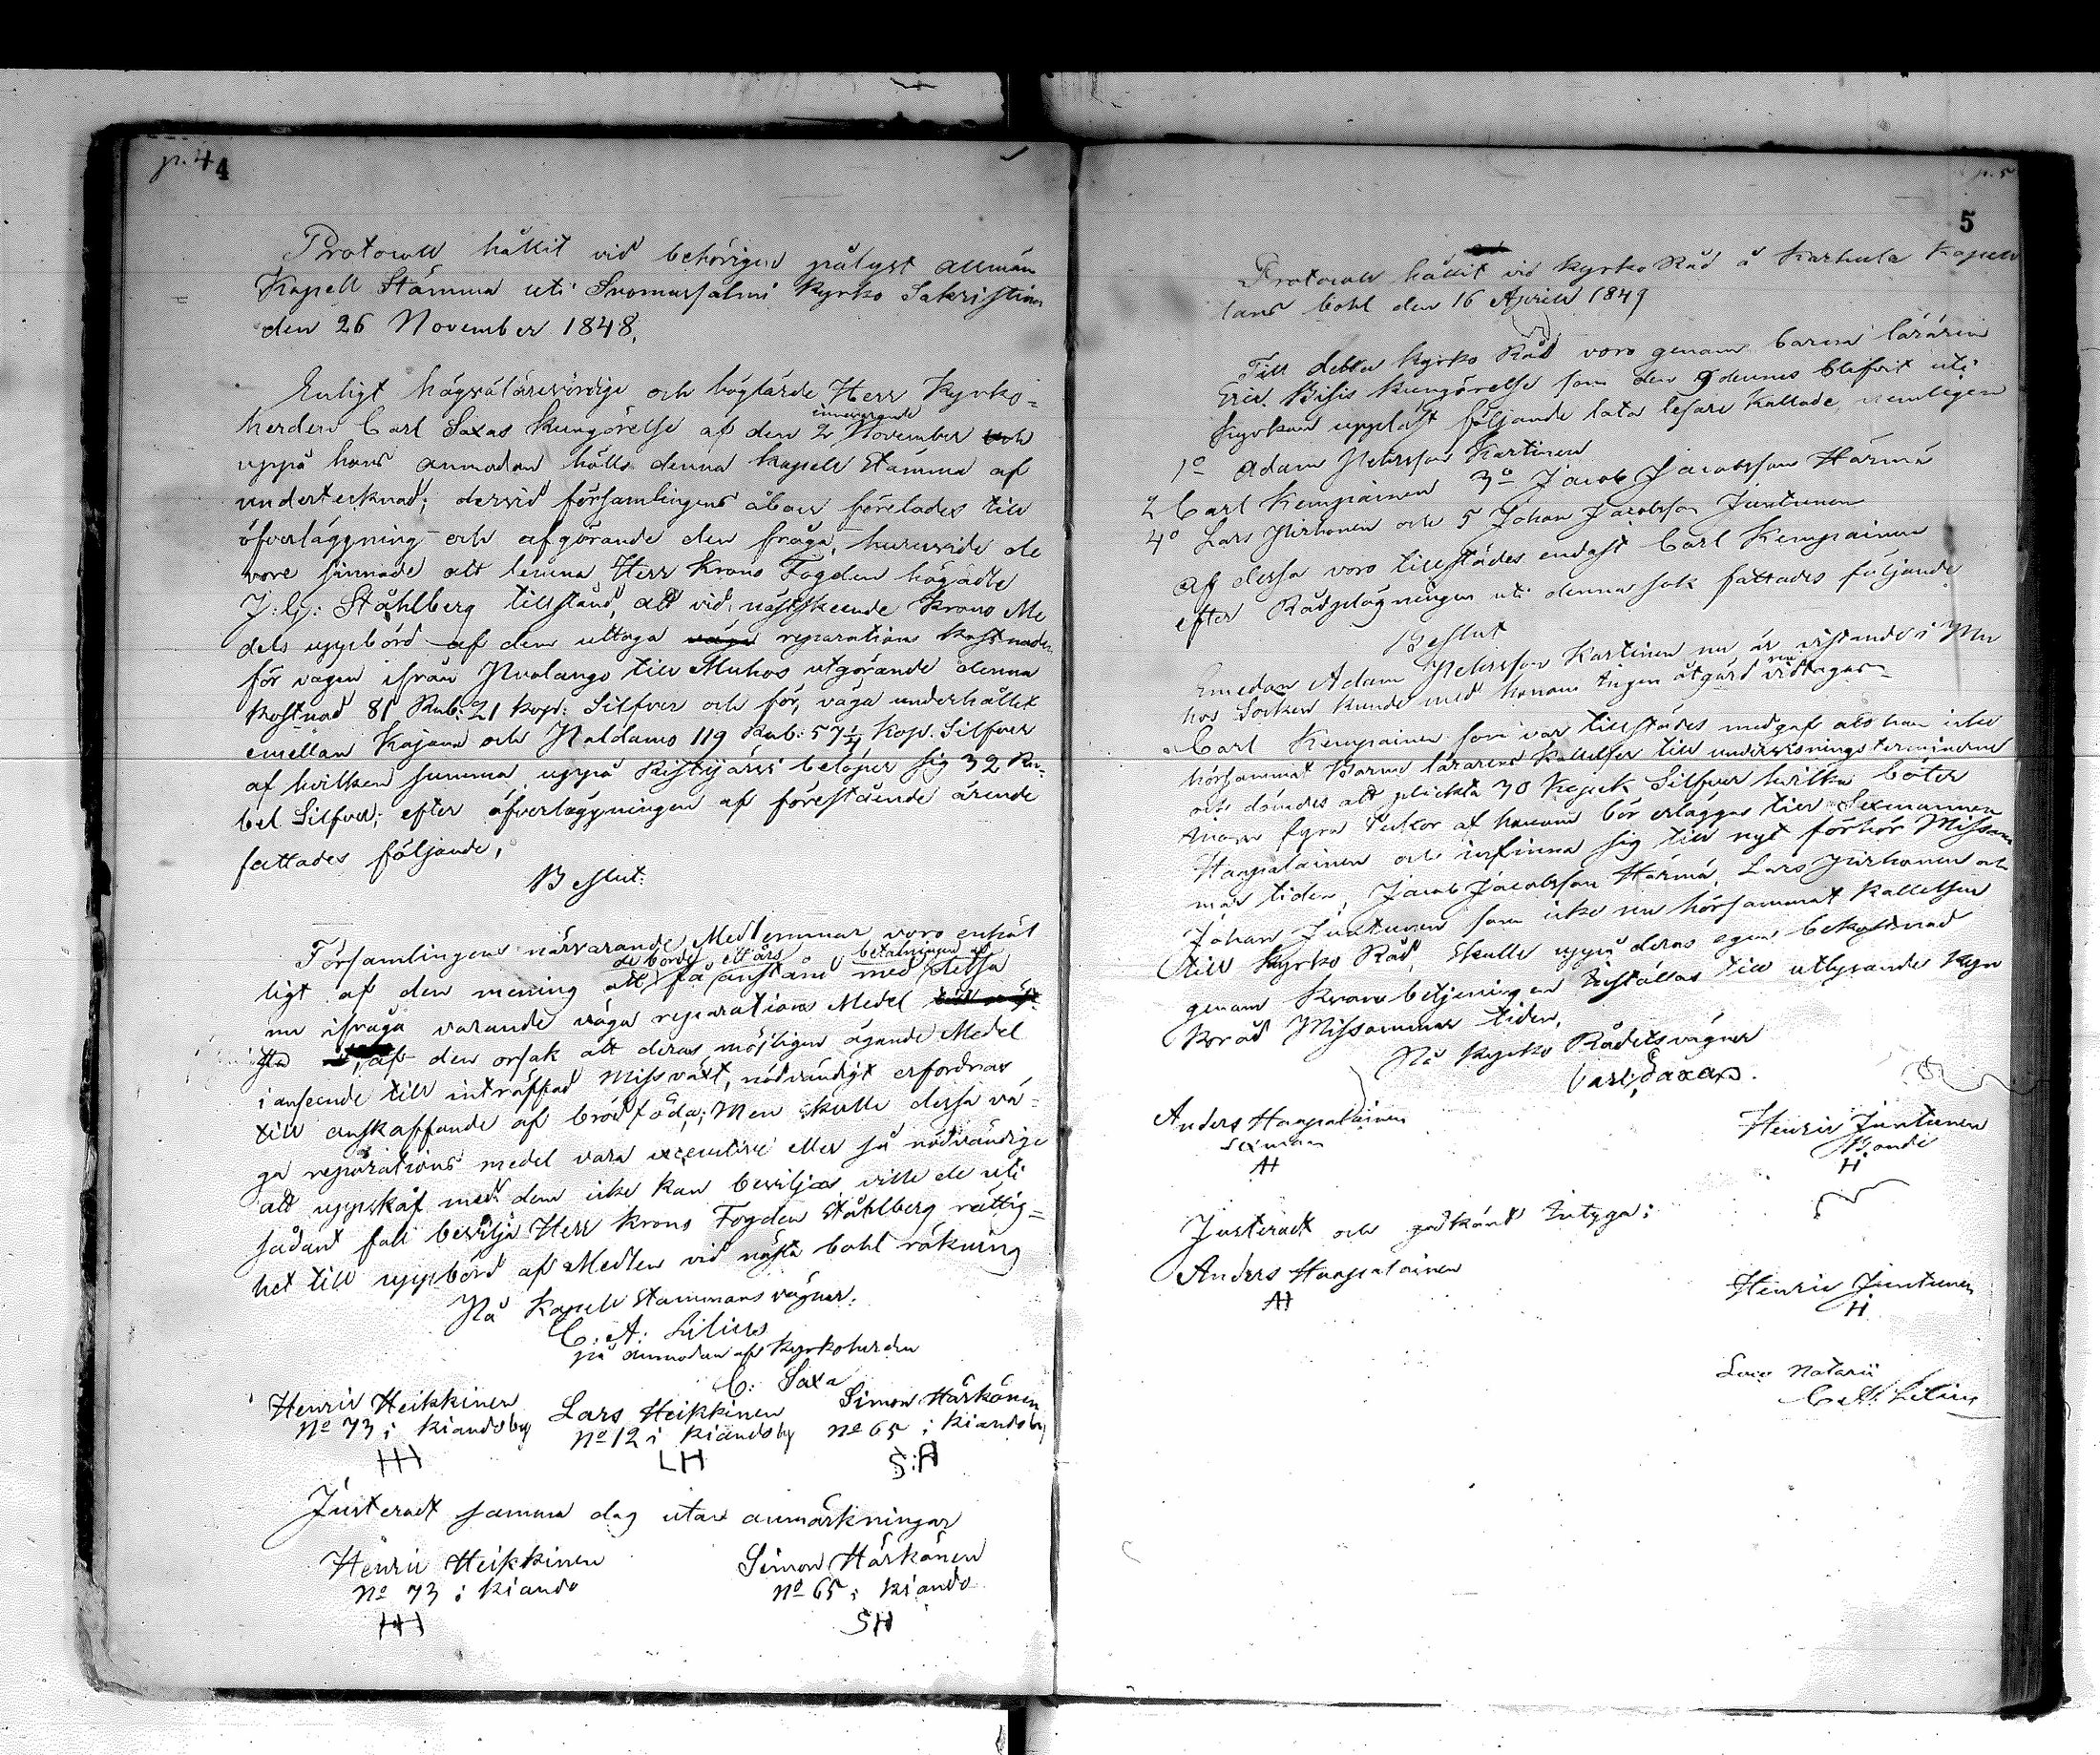 p. 4 4
Protocoll hållit vid behörigen pålyst allmän
Kapell Stämma uti Suomussalmi Kyrko Sakristian
den 26 November 1848.
Enligt högvälärevördige och höglärde Herr Kyrko-
herden Carl Saxas kungörelse af den 2 innevarande November och
uppå hans anmodan hölls denna Kapell Stämma af
undertecknad; dervid församlingens åboer förelades till
öfverläggning och afgörande den fråga, huruvida de
vore sinnade att lemna Herr Krono Fogden högädle
J: G: Ståhlberg tillstånd, att vid nästskeende Krono Me
dels uppbörd af dem uttaga väga reparations kostnaden
för vägen ifrån Puolango till Muhos utgörande denna
kostnad 81 Rub: 21 kop: Silfver och för väga underhållet
emellan Kajana och Paldamo 119 Rub: 57 1/4 Kop. Silfver
af hvilken summa uppå Ristijärvi belöper sig 32 Ru-
bel Silfver; efter öfverläggningen af förestående ärende
fattades följande,
Beslut:
Församlingens närvarande Medlemmar voro enhäl
ligt af den mening att de borde få ett års anstånd med betalningen af dessa
nu ifråga varande väga reparations Medel
sta af den orsak att deras möjligen ägande Medel
i anseende till inträffad Missväxt, nödvändigt erfordras
till anskaffande af brödföda; Men skulle dessa vä-
ga reparations medel vara executive eller så nödvändige
att uppskof med dem icke kan beviljas ville de uti
sådant fall bevilja Herr Krono Fogden Ståhlberg rättig-
het till uppbörd af Medlen vid nästa bohl räkning
På Kapell Stämmans vägnar:
C: A: Lilius
på anmodan af Kyrkoherden
C: Saxa
Henric Heikkinen Lars Heikkinen Simon Härkönen
No 73 i Kiandoby No 12 i Kiandoby No 65 i Kiandoby
HH LH S:H
Justeradt samma dag utan anmärkningar
Henric Heikkinen Simon Härkönen
No 73 i Kiando No 65 i Kiando
HH SH
p. 5
5
Protocoll hållit vid Kyrko Råd å Karhula Kapell
lans bohl den 16 April 1849
Till detta Kyrko Råd voro genom barna läraren
Eric kungörelse som den 9 dennes blifvit uti
Kyrkan uppläst följande lata läsare kallade nemligen
1o Adam Pehrsson Kartinen
2 Carl Kempainen 3o Jacob Jacobsson Härmä
4o Lars Pirhonen och 5 Johan Jacobsson Juntunen
Af dessa voro tillstädes endast Carl Kempainen
efter Rådplägningen uti denna sak fattades följande
Beslut
Emedan Adam Pehrsson Kartinen nu är vistande i Mu
hos Socken kunde med honom ingen åtgärd nu vidtagas
Carl Kempainen som var tillstädes medgaf att han icke
hörsammat Barna lärarens kallelser till undervisnings terminerne
och dömdes att plickta 30 Kopek Silfver hvilka böter
innom fyra veckor af honom bör erläggas till Sexmannen
Haapalainen och infinna sig till nyt förhör Missom
mar tiden, Jacob Jacobsson Härmä, Lars Pirhonen och
Johan Juntunen som icke nu hörsammat kallelsen
till Kyrko Råd, skulle uppå deras egen bekostnad
genom Krono betjeningen instållas till utlysande Kyr
ko råd Missommar tiden,
På Kyrko Rådets vägnar
Carl Saxa
Anders Haapalainen Henric Juntunen
Sexman Bonde
AH H
Justeradt och godkänt intyga:
Anders Haapalainen Henric Juntunen
AH H
Loco Notarii
C. A. Lilius